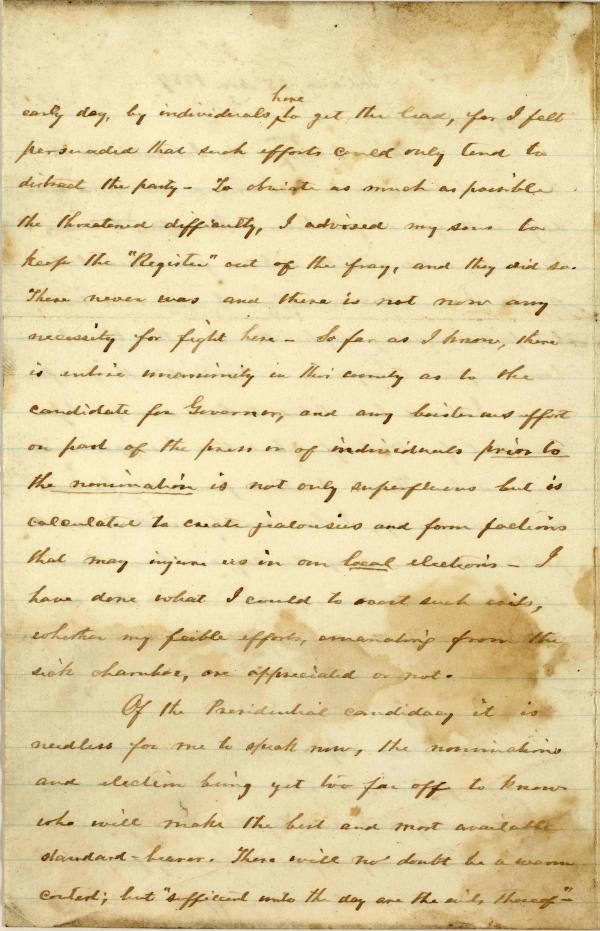 here
early day, by individuals ^ to get the lead, for I felt
persuaded that such efforts could only tend to
distract the party - To obviate as much as possible
the threatened difficulty, I advised my sons to
keep the "Register" out of the fray, and they did so.
There never was and there is not now any
necessity for fight here - So far as I know, there
is entire unanimity in this county as to the
candidate for Governor, and any boisterous effort
on part of the press or of individuals prior to
the nomination is not only superfluous but is
calculated to create jealousies and form factions
that may injure us in our local elections - I
have done what I could to avert such evils,
whether my feeble efforts, emanating from the
sick chamber, are appreciated or not.
Of the Presidential candidacy it is
needless for me to speak now, the nominations
and election being yet too far off to know
who will make the best and most available
standard-bearer. There will no doubt be a warm
contest; but "sufficient unto the day are the evils thereof"-